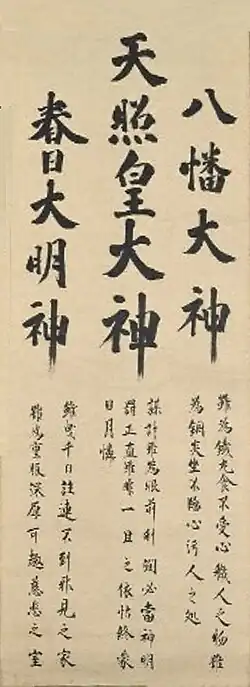 八幡大神
天照皇大神
春日大明神
雖為鐵丸食不受心穢人之物雖
為銅炎坐不臨心汚人之処
謀計雖為眼前利潤必當神明
罸正直雖非一旦之依怙終蒙
日月憐
雖曳千日註連不到邪見之家
雖為重服深厚可趣慈悲之室